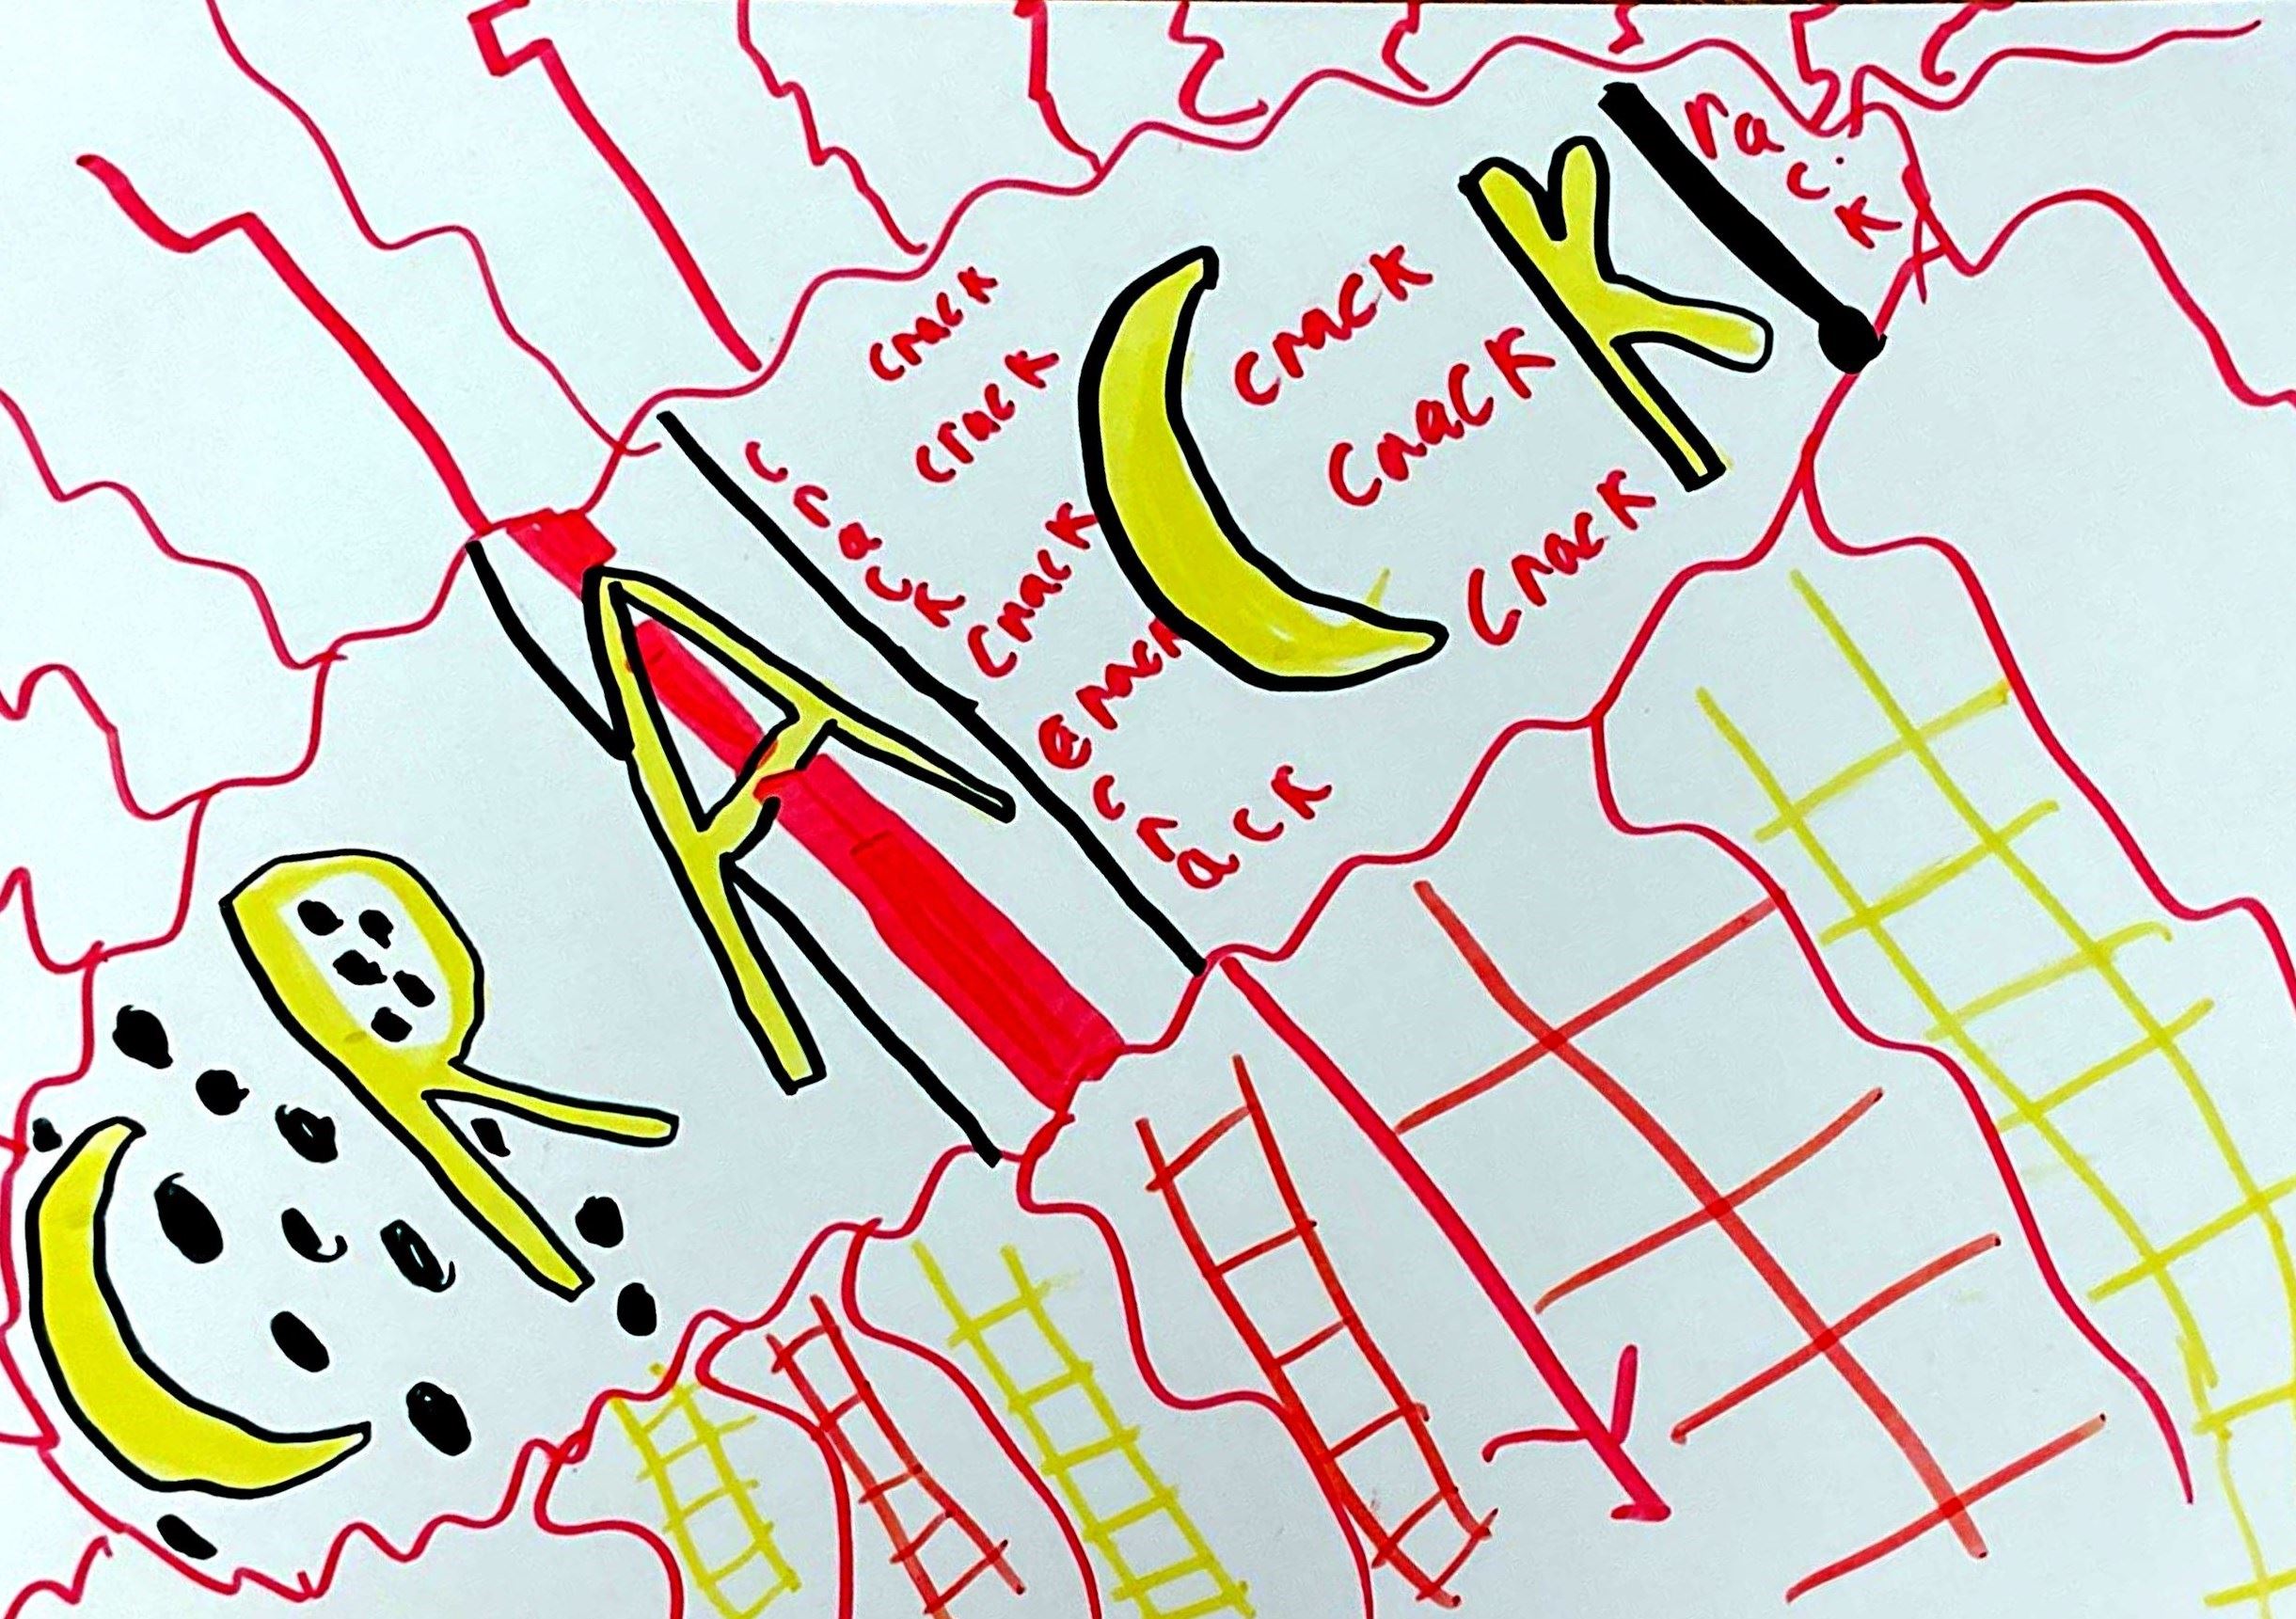 CRACK!
crack
crack
crack
crack
crack
crack
crack
crack
crack
rack